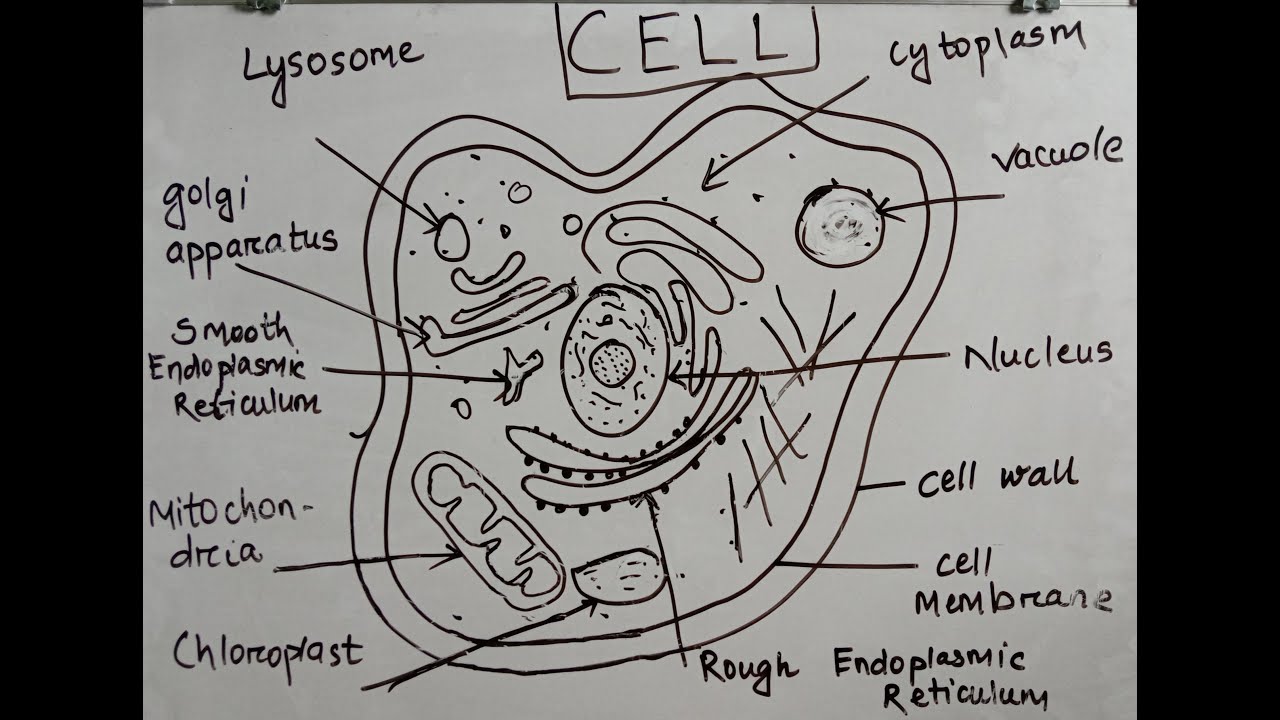 CELL
Lysosome
Cytoplasm
Vacuole
golgi
apparatus
Smooth
Endoplasmic
Reticulum
Nucleus
cell wall
Mitochon-
dria
cell
Membrane
Chloroplast
Rough Endoplasmic
Reticulum